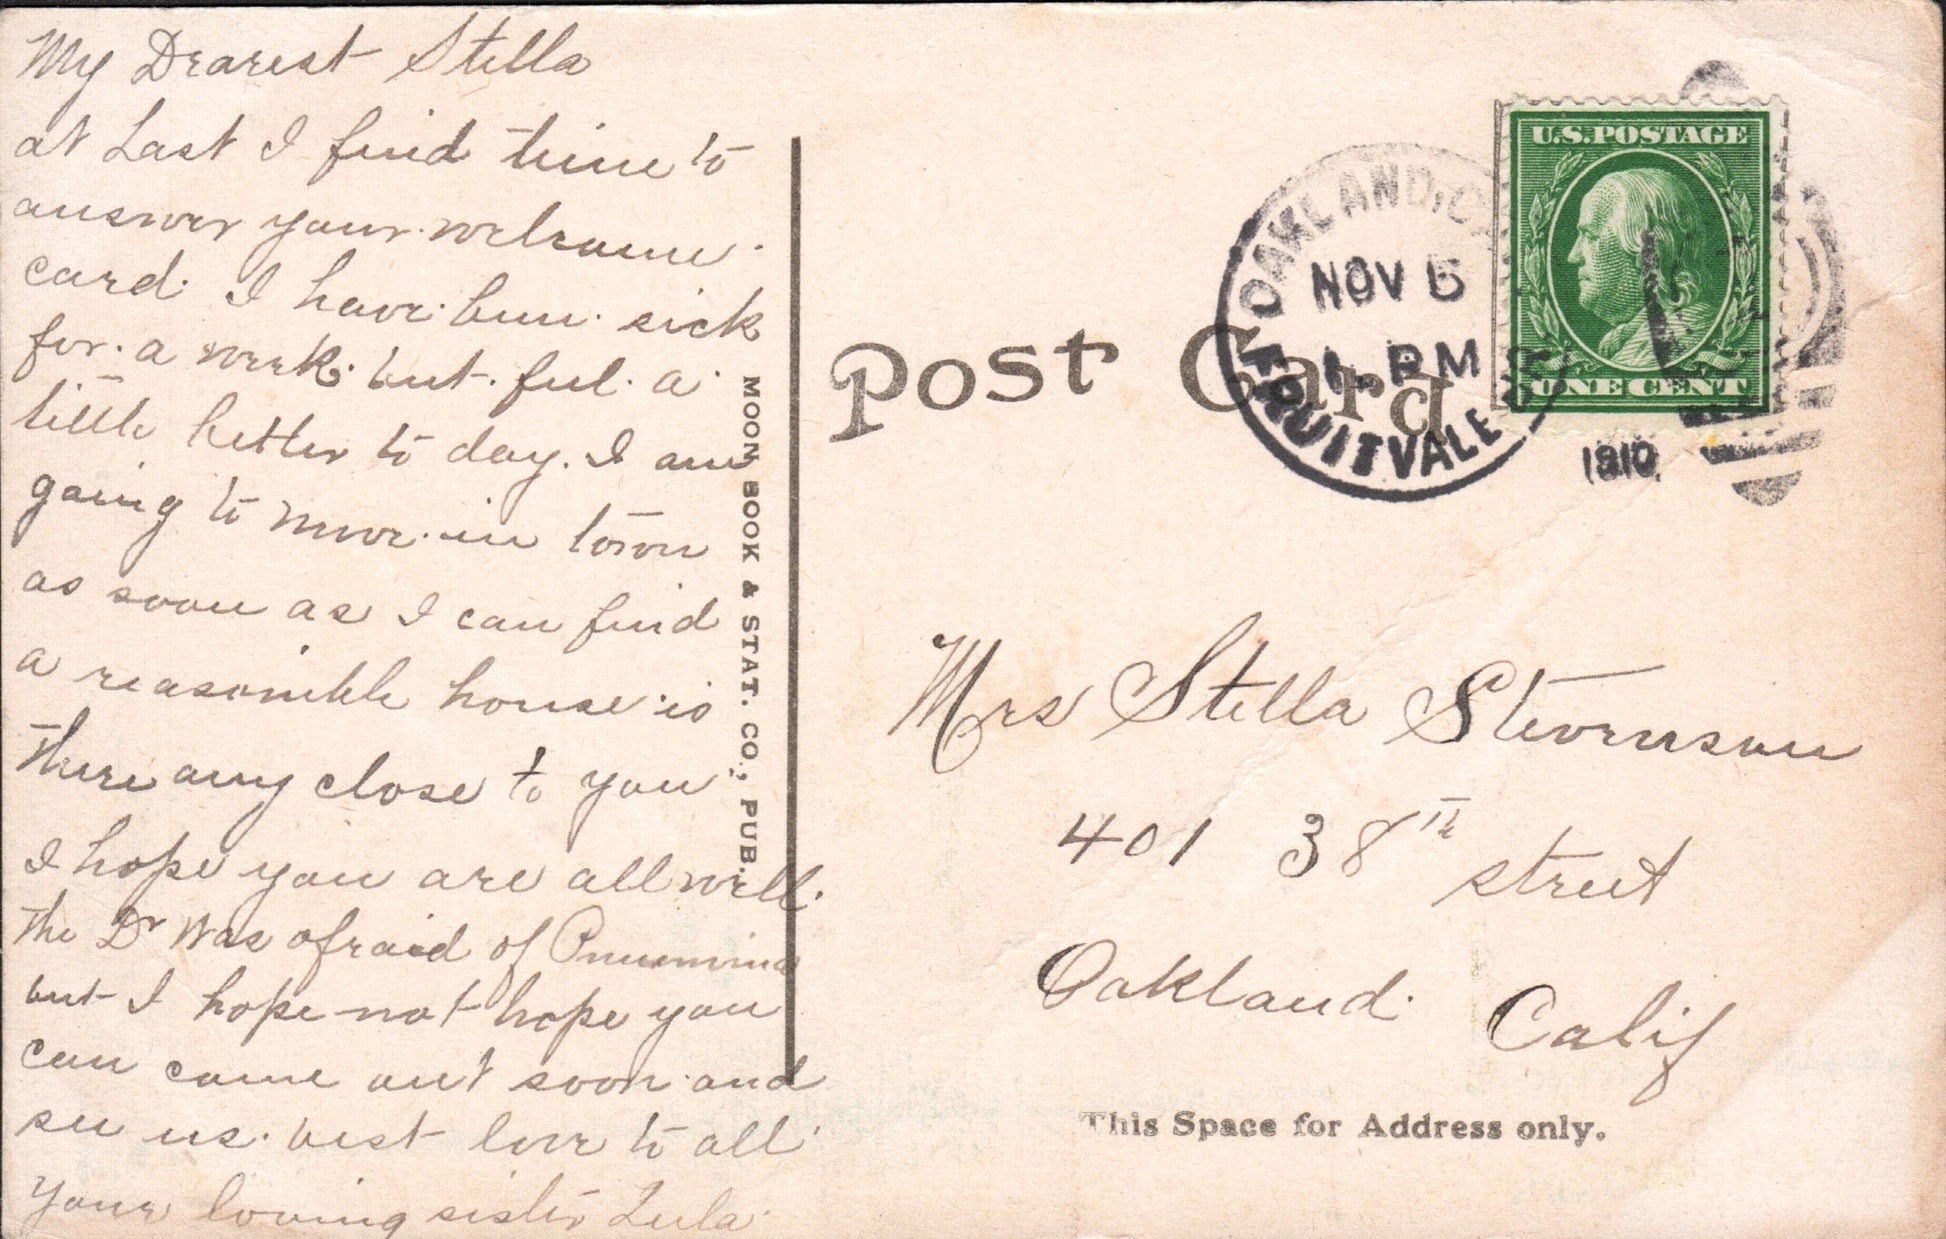 My Dearest Stella
at Last I find time to
answer your welcome
card. I have been sick
for a week but feel a
little better to day. I am
going to move in town
as soon as I can find
a reasonible house is
there any close to you
I hope you are all well.
the Dr was afraid of
but I hope not hope you
can come out soon and
see us. best love to all
Your loving sister Lula
MOON BOOK & STAT. CO., PUB.
Post Card
OAKLAND, CAL
NOV 5
1 PM
FRUITVALE
1910
U.S. POSTAGE
ONE CENT
Mrs Stella Stevenson
401 38th street
Oakland Calif
This Space for Address only.